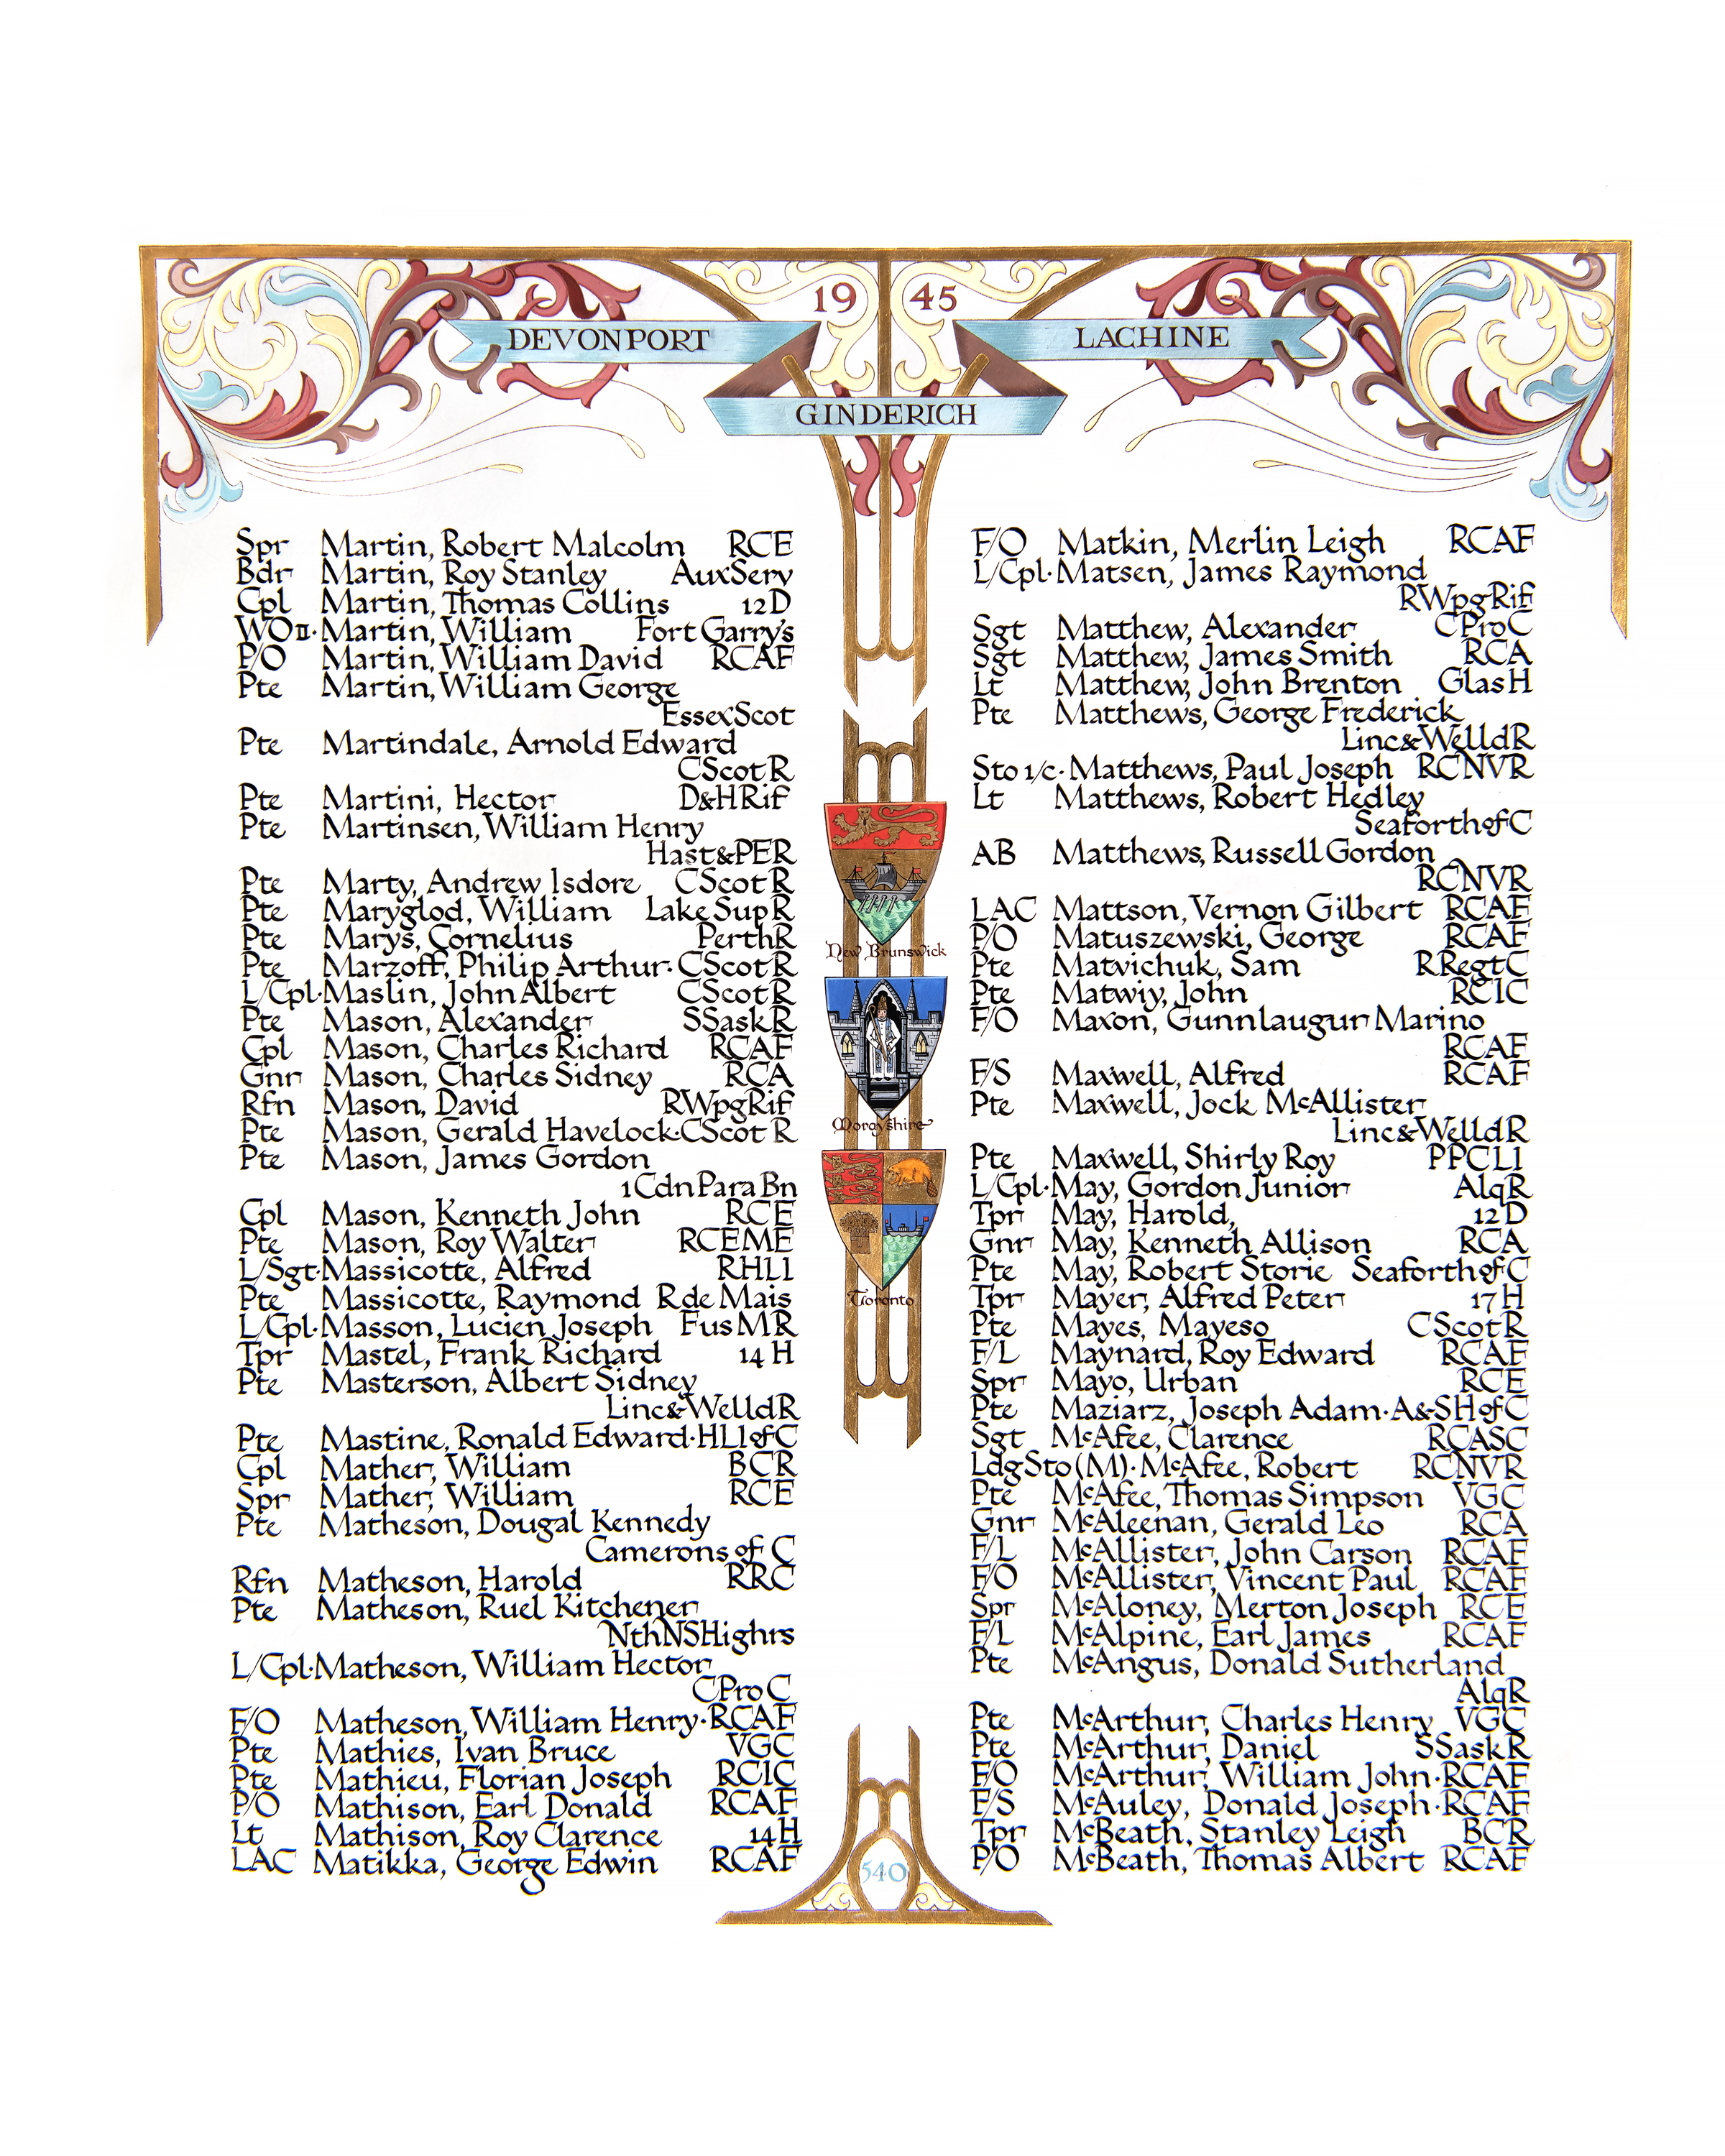 19 45
DEVONPORT
LACHINE
GINDERICH
Spr Martin, Robert Malcolm RCE
Bdr Martin, Roy Stanley AuxServ
Cpl Martin, Thomas Collins 12D
WOII·Martin, William Fort Garry's
P/O Martin, William David RCAF
Pte Martin, William George
EssexScot
Pte Martindale, Arnold Edward
CScotR
Pte Martini, Hector D&HRif
Pte Martinsen, William Henry
Hast&PER
Pte Marty, Andrew Isdore CScotR
Pte Maryglod, William LakeSupR
Pte Marys, Cornelius PerthR
Pte Marzoff, Philip Arthur·CScotR
L/Cpl·Maslin, John Albert CScotR
Pte Mason, Alexander SSaskR
Cpl Mason, Charles Richard RCAF
Gnr Mason, Charles Sidney RCA
Rfn Mason, David RWpgRif
Pte Mason, Gerald Havelock·CScotR
Pte Mason, James Gordon
1CdnParaBn
Cpl Mason, Kenneth John RCE
Pte Mason, Roy Walter RCEME
L/Sgt·Massicotte, Alfred RHLI
Pte Massicotte, Raymond RdeMais
L/Cpl·Masson, Lucien Joseph FusMR
Tpr Mastel, Frank Richard 14H
Pte Masterson, Albert Sidney
Linc&WelldR
Pte Mastine, Ronald Edward·HLIofC
Cpl Mather, William BCR
Spr Mather, William RCE
Pte Matheson, Dougal Kennedy
Camerons of C
Rfn Matheson, Harold RRC
Pte Matheson, Ruel Kitchener
NthNSHighrs
L/Cpl·Matheson, William Hector
CProC
F/O Matheson, William Henry·RCAF
Pte Mathies, Ivan Bruce VGC
Pte Mathieu, Florian Joseph RCIC
P/O Mathison, Earl Donald RCAF
Lt Mathison, Roy Clarence 14H
LAC Matikka, George Edwin RCAF
New Brunswick
Moray­shire
Toronto
540
F/O Matkin, Merlin Leigh RCAF
L/Cpl·Matsen, James Raymond
RWpgRif
Sgt Matthew, Alexander CProC
Sgt Matthew, James Smith RCA
Lt Matthew, John Brenton GlasH
Pte Matthews, George Frederick
Linc&WelldR
Sto 1/c·Matthews, Paul Joseph RCNVR
Lt Matthews, Robert Hedley
SeaforthofC
AB Matthews, Russell Gordon
RCNVR
LAC Mattson, Vernon Gilbert RCAF
P/O Matuszewski, George RCAF
Pte Matvichuk, Sam RRegtC
Pte Matwiy, John RCIC
F/O Maxon, Gunnlaugur Marino
RCAF
F/S Maxwell, Alfred RCAF
Pte Maxwell, Jock McAllister
Linc&WelldR
Pte Maxwell, Shirly Roy PPCLI
L/Cpl·May, Gordon Junior AlqR
Tpr May, Harold, 12D
Gnr May, Kenneth Allison RCA
Pte May, Robert Storie SeaforthofC
Tpr Mayer, Alfred Peter 17H
Pte Mayes, Mayeso CScotR
F/L Maynard, Roy Edward RCAF
Spr Mayo, Urban RCE
Pte Maziarz, Joseph Adam·A&SHofC
Sgt McAfee, Clarence RCASC
LdgSto(M)·McAfee, Robert RCNVR
Pte McAfee, Thomas Simpson VGC
Gnr McAleenan, Gerald Leo RCA
F/L McAllister, John Carson RCAF
F/O McAllister, Vincent Paul RCAF
Spr McAloney, Merton Joseph RCE
F/L McAlpine, Earl James RCAF
Pte McAngus, Donald Sutherland
AlqR
Pte McArthur, Charles Henry VGC
Pte McArthur, Daniel SSaskR
F/O McArthur, William John·RCAF
F/S McAuley, Donald Joseph·RCAF
Tpr McBeath, Stanley Leigh BCR
P/O McBeath, Thomas Albert RCAF